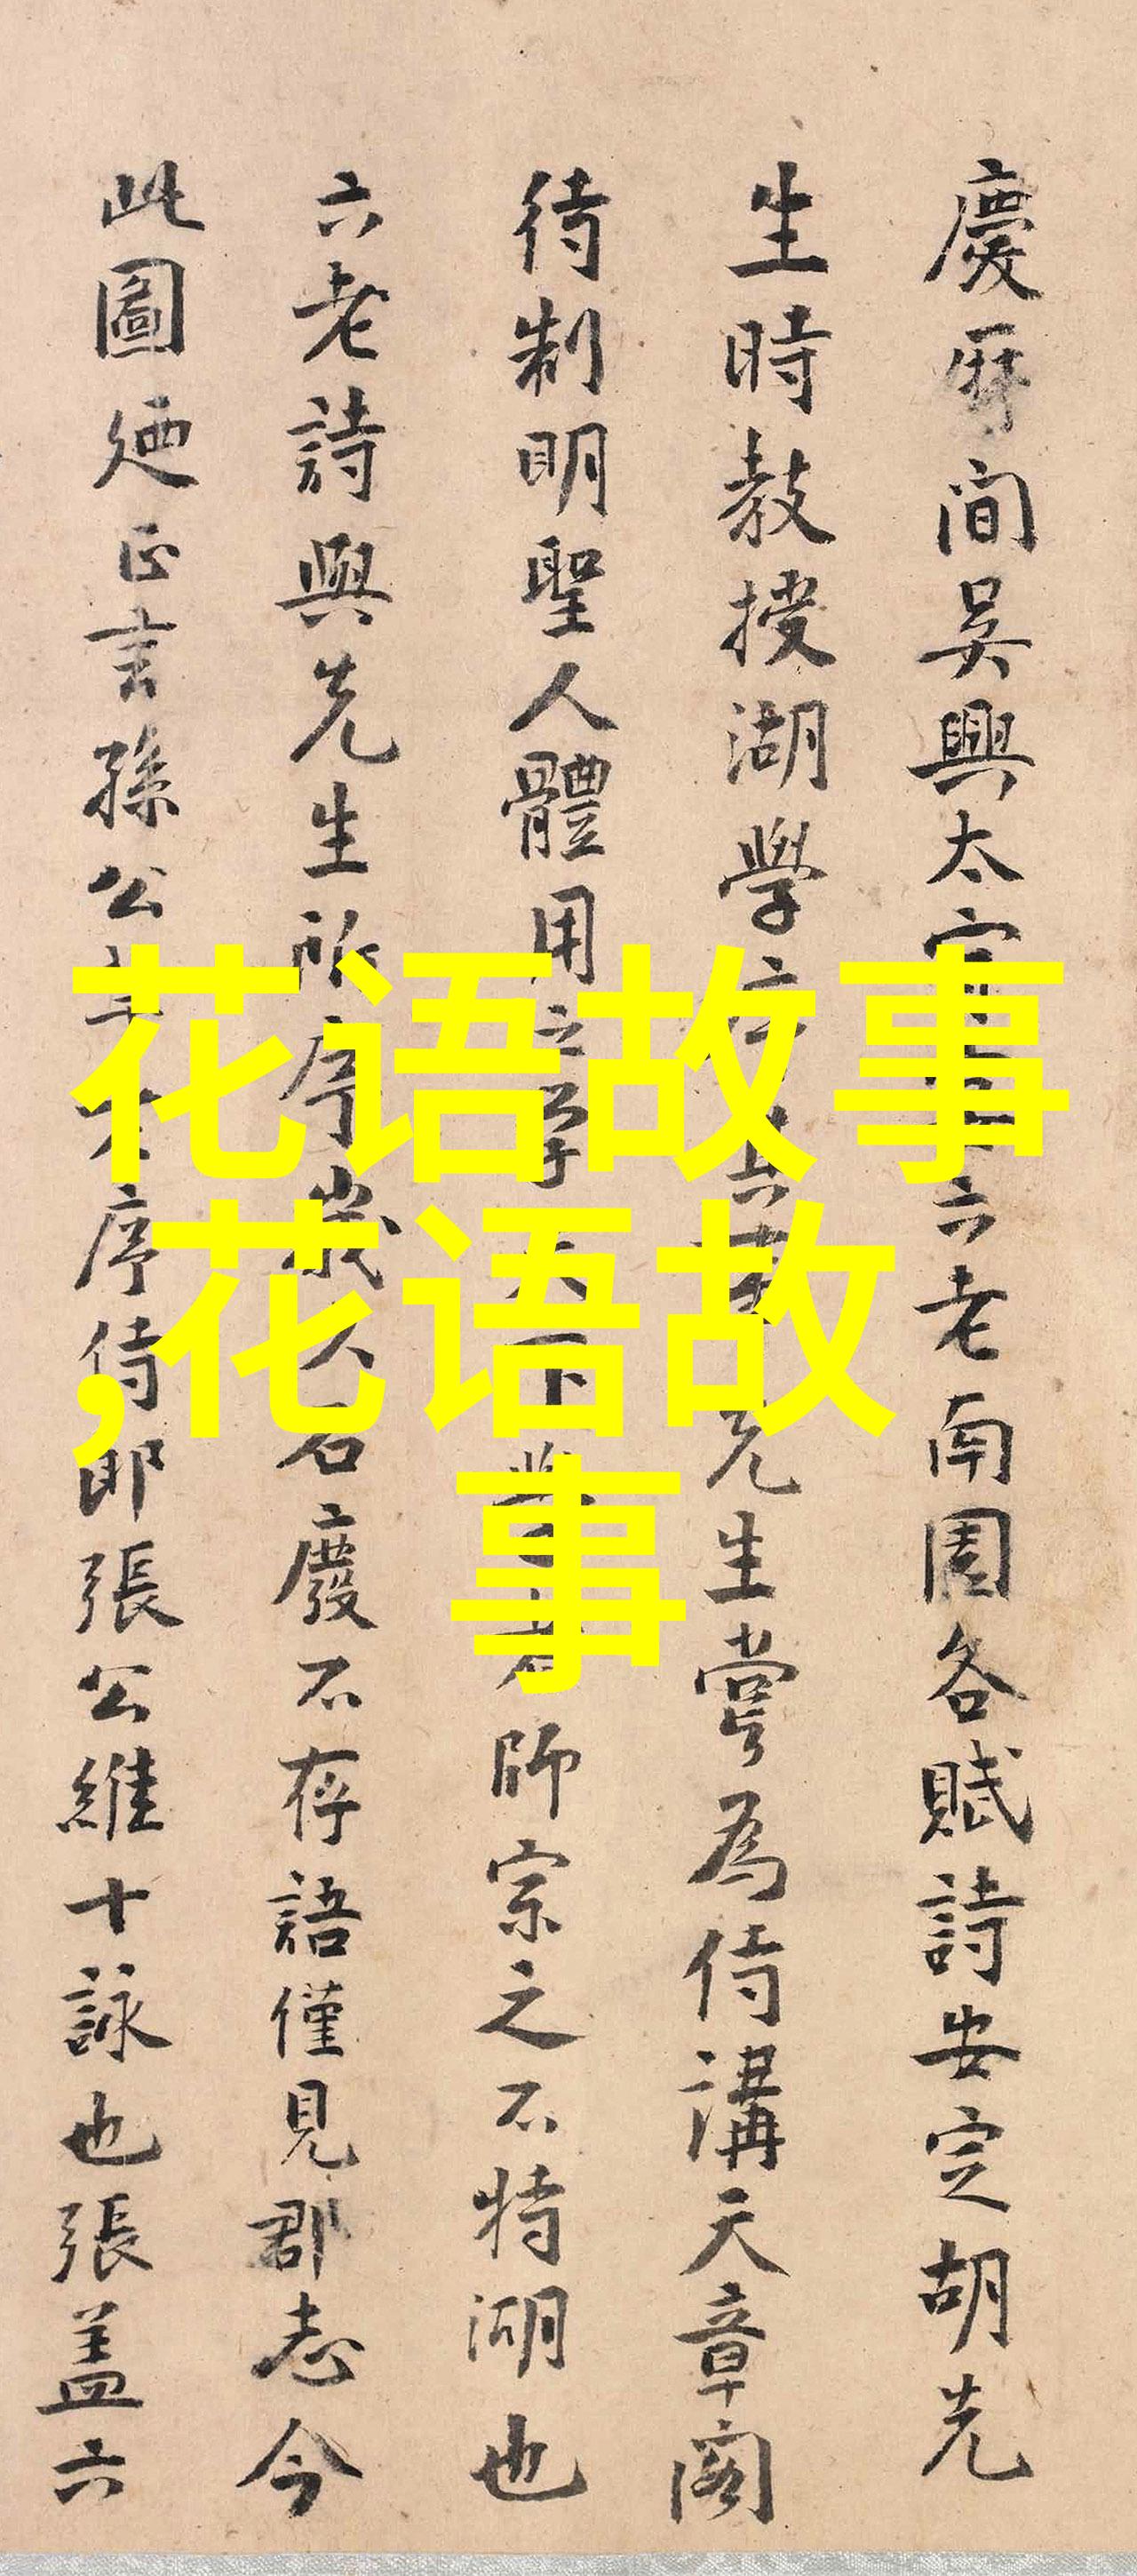 慶厤間吳興太守六老南園各賦詩安定胡先
生時教授湖學先生嘗為侍講天章閣
待制明聖人體用之學下師宗之不特湖也
六老詩與先生所序人石廢不存語僅見郡志今
此圖廼正言孫公序侍郎張公維十詠也張盖六
花语故事
,花语故
事